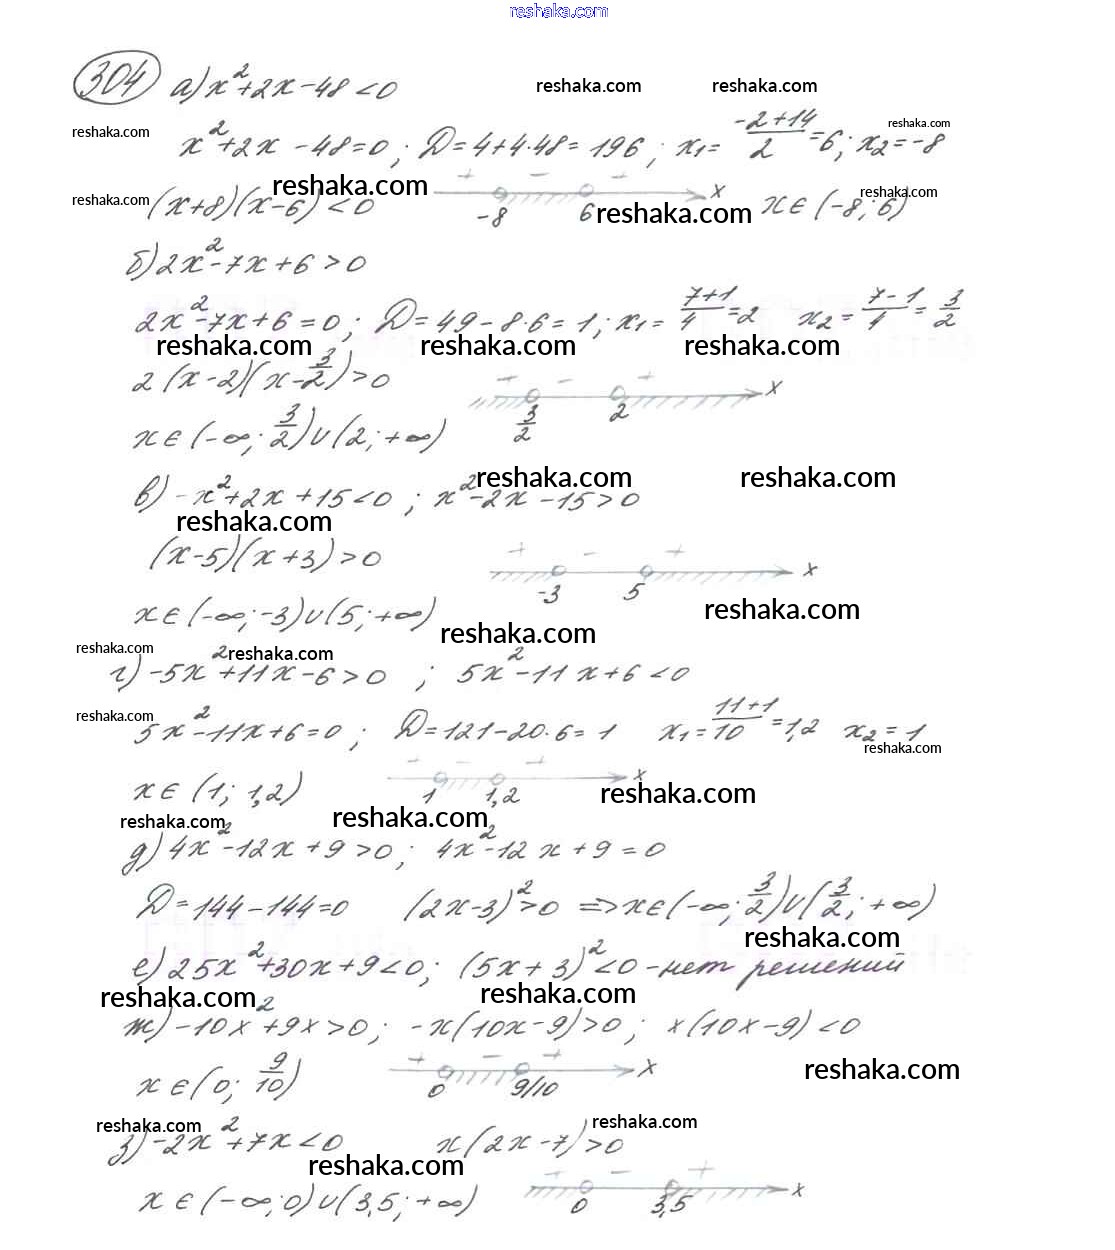 reshaka.com
304 а) x²+2x-48<0 reshaka.com reshaka.com
reshaka.com x²+2x-48=0; D=4+4·48=196; x₁=(-2+14)/2=6; x₂=-8 reshaka.com
reshaka.com (x+8)(x-6)<0 reshaka.com + - + x -8 6 reshaka.com x∈(-8;6) reshaka.com
б) 2x²-7x+6>0
2x²-7x+6=0; D=49-8·6=1; x₁=(7+1)/4=2 x₂=(7-1)/4=3/2
reshaka.com reshaka.com reshaka.com
2(x-2)(x-3/2)>0 + - + x 3/2 2
x∈(-∞;3/2)∪(2;+∞)
reshaka.com reshaka.com
в) -x²+2x+15<0; x²-2x-15>0
reshaka.com
(x-5)(x+3)>0 + - + x -3 5
x∈(-∞;-3)∪(5;+∞) reshaka.com reshaka.com
reshaka.com reshaka.com
г) -5x²+11x-6>0; 5x²-11x+6<0
reshaka.com 5x²-11x+6=0; D=121-20·6=1 x₁=(11+1)/10=1,2 x₂=1 reshaka.com
x∈(1; 1,2) + - + x 1 1,2 reshaka.com
reshaka.com reshaka.com
д) 4x²-12x+9>0; 4x²-12x+9=0
D=144-144=0 (2x-3)²>0 => x∈(-∞;3/2)∪(3/2;+∞)
reshaka.com
е) 25x²+30x+9<0; (5x+3)²<0 - нет решений
reshaka.com reshaka.com
ж) -10x²+9x>0; -x(10x-9)>0; x(10x-9)<0
x∈(0; 9/10) + - + x 0 9/10 reshaka.com
reshaka.com reshaka.com
з) -2x²+7x<0 x(2x-7)>0
reshaka.com
x∈(-∞;0)∪(3,5;+∞) + - + x 0 3,5